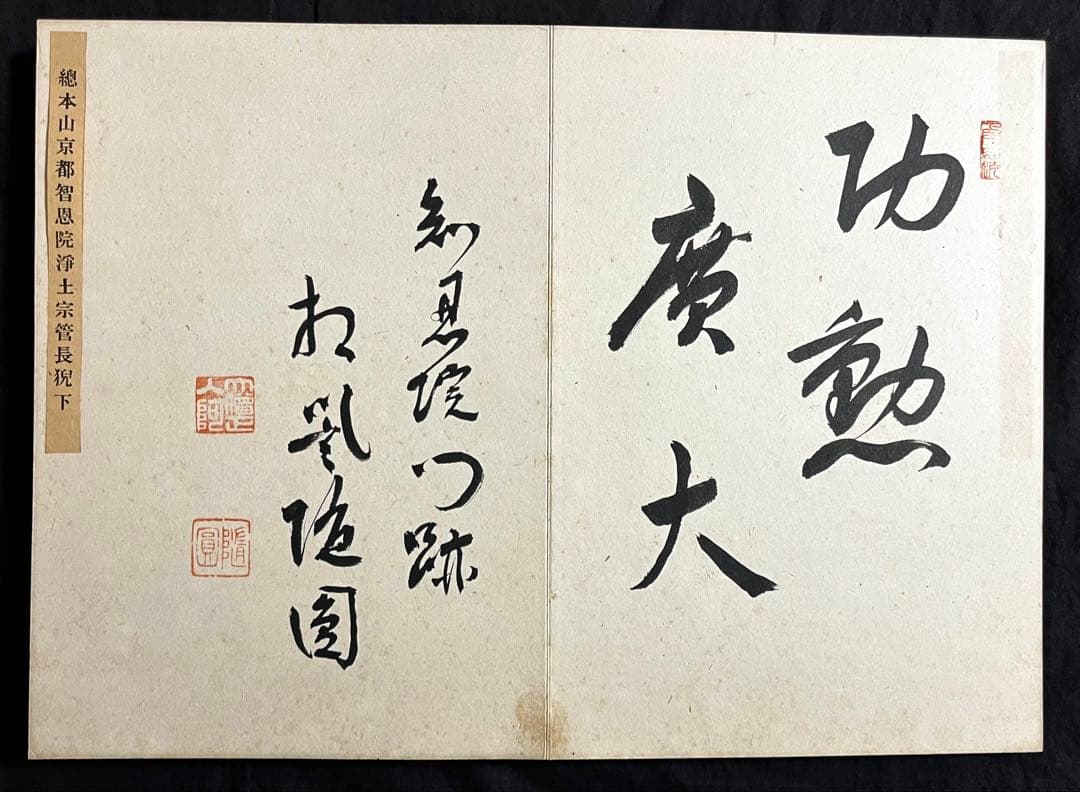 功勲
廣大
知恩院門跡
隨圓
隨圓
總本山京都智恩院淨土宗管長猊下